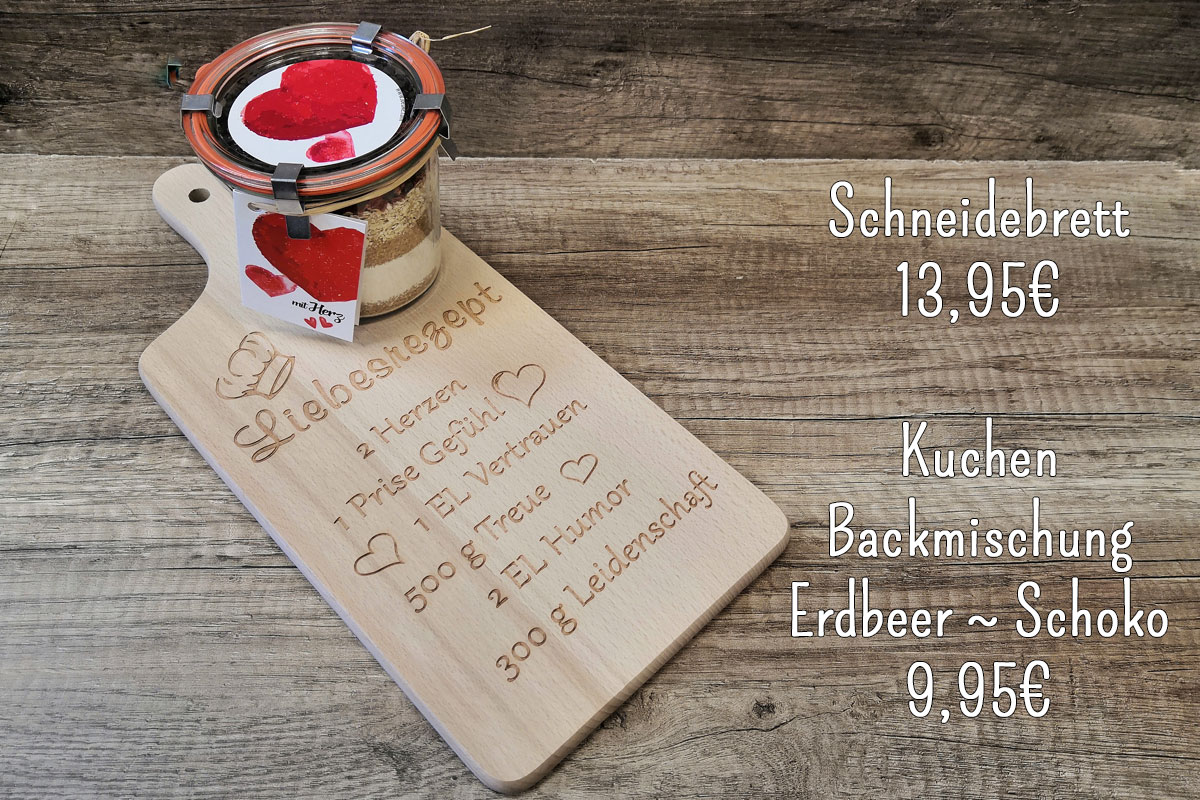 mit Herz
Liebesrezept
2 Herzen
1 Prise Gefühl
1 EL Vertrauen
500 g Treue
2 EL Humor
300 g Leidenschaft
Schneidebrett
13,95€
Kuchen
Backmischung
Erdbeer ~ Schoko
9,95€